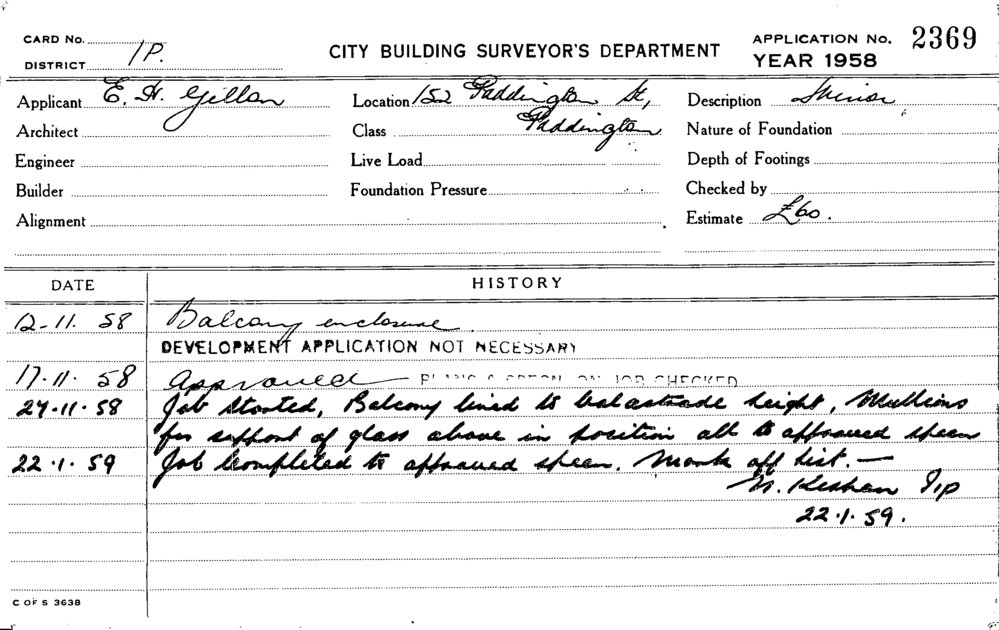 CARD No.
DISTRICT 1P.
CITY BUILDING SURVEYOR'S DEPARTMENT
APPLICATION No. 2369
YEAR 1958
Applicant E. H. Gillan
Location 152 Paddington St,
Paddington
Description Minor
Architect
Class
Nature of Foundation
Engineer
Live Load
Depth of Footings
Builder
Foundation Pressure
Checked by
Alignment
Estimate £60.
DATE
HISTORY
12-11.58 Balcony enclosure
DEVELOPMENT APPLICATION NOT NECESSARY
17.11.58 Approved PLANS & SPECN ON JOB CHECKED
24.11.58 Job Started, Balcony lined to balastrade height, Mullions
for support of glass above in position all to approved specn
22.1.59 Job Completed to approved specn. Mark off list.—
Insp
22.1.59.
C OF S 3638